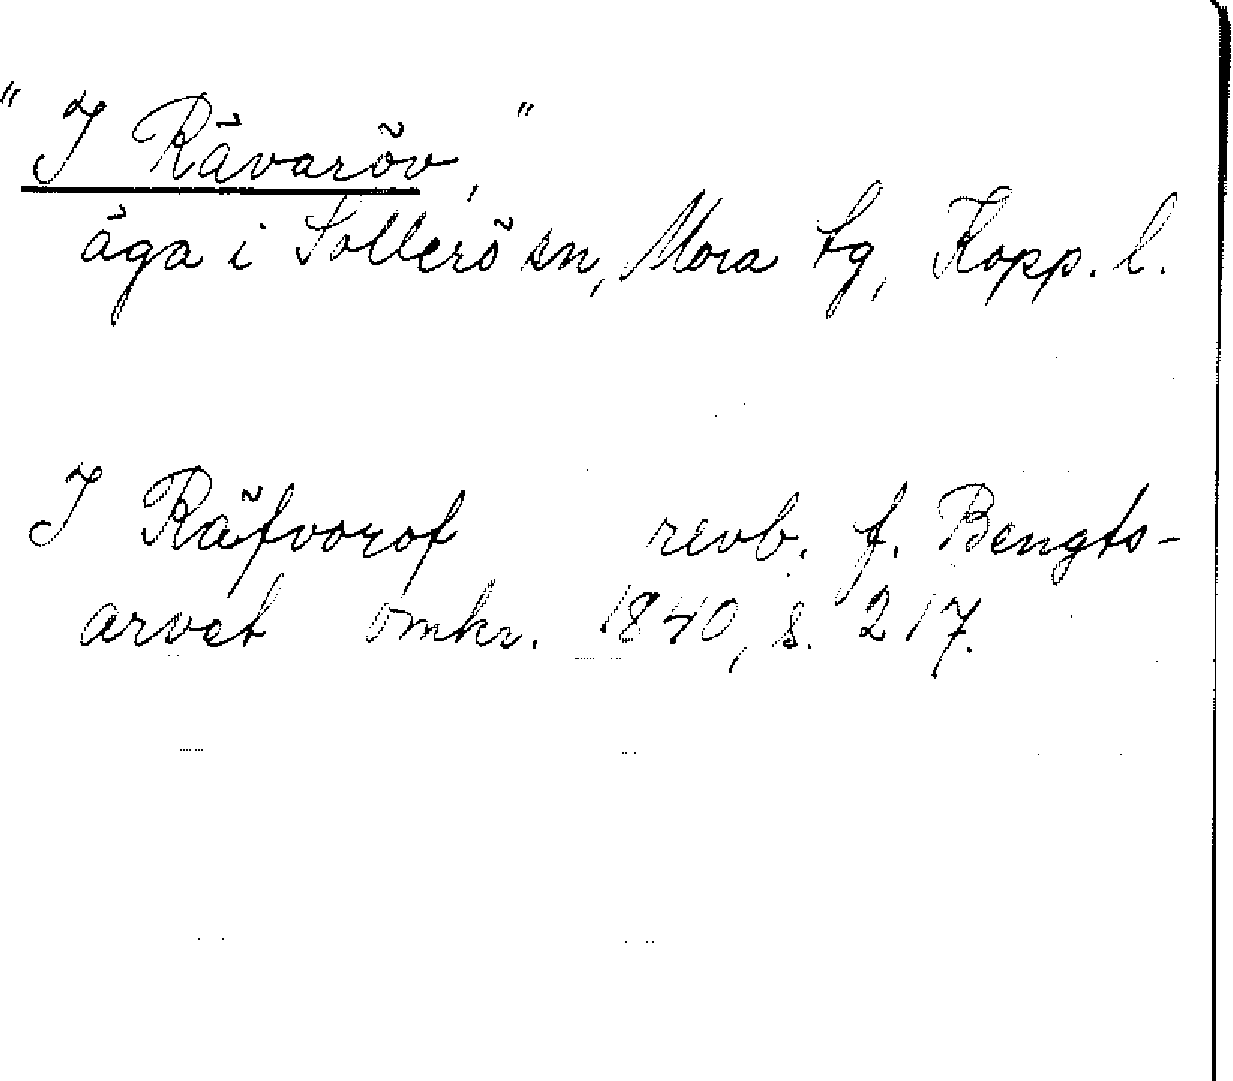 "I Råvaröv,"
äga i Sollerö sn, Mora tg, Kopp. l.
I Räfvorof revb. f. Bengts-
arvet omkr. 1840, s. 217.